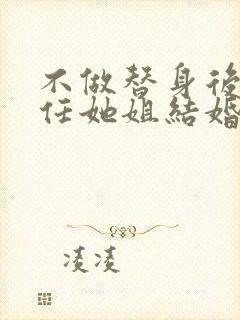 不做替身後
任她姐結婚
凌凌